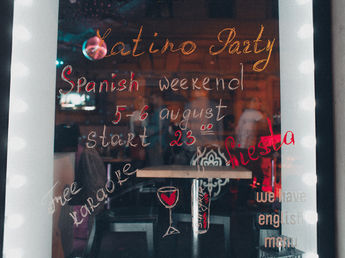 Latino Party
Spanish weekend
5-6 august
start 23 00
fiesta
Free
karaoke
we have
english
menu